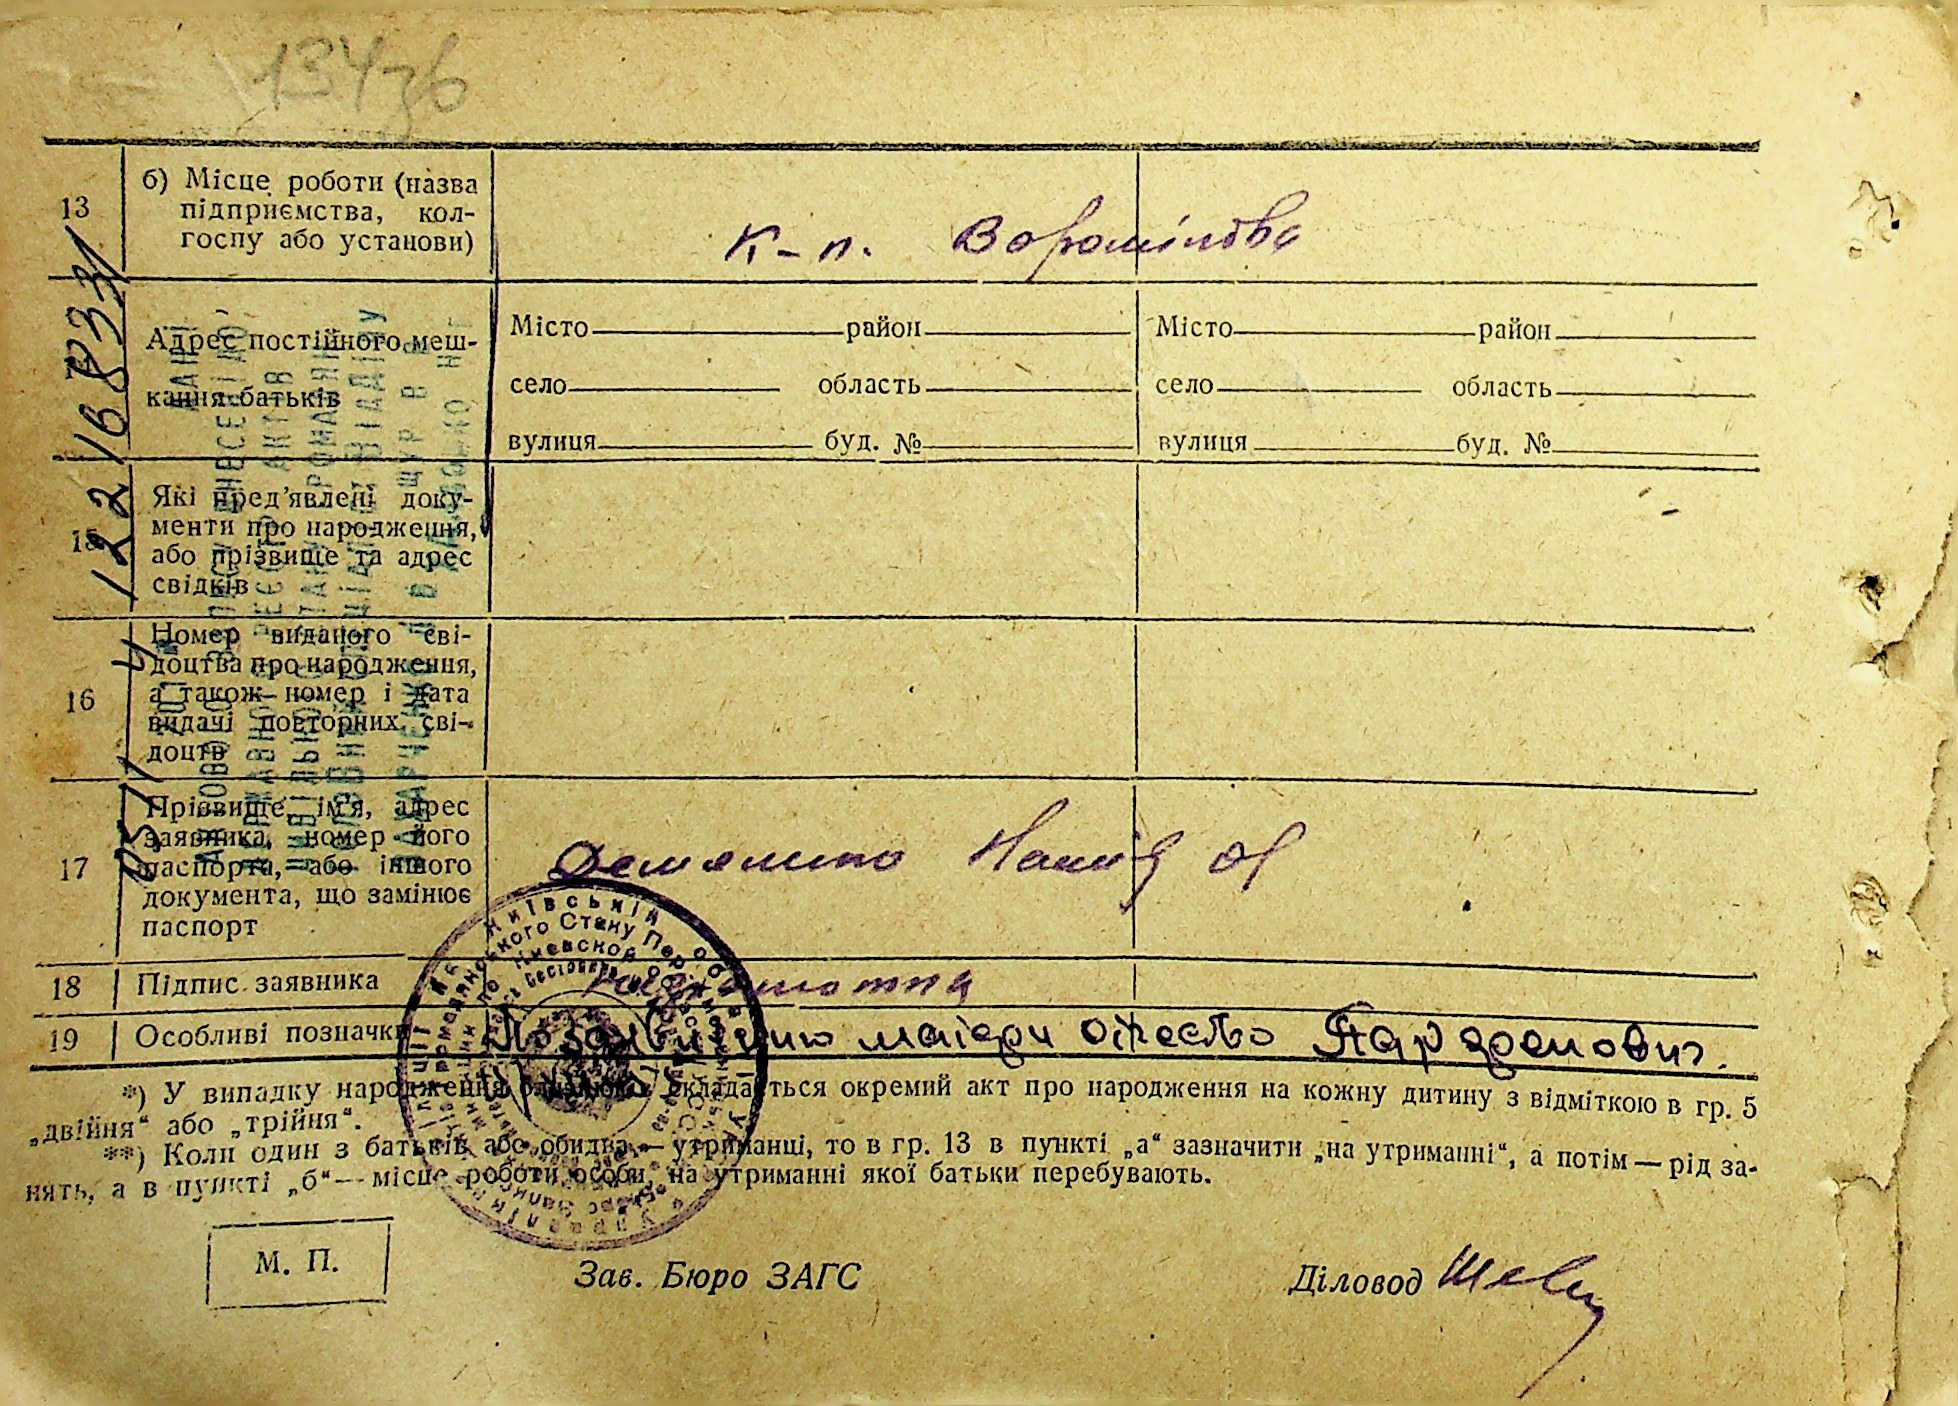 134зв
13
б) Місце роботи (назва
підприємства, кол-
госпу або установи)
К-п. Ворошілова
Адрес постійного меш-
кання батьків
Місто район
село область
вулиця буд. №
Місто район
село область
вулиця буд. №
15
Які пред’явлені доку-
менти про народження,
або прізвище та адрес
свідків
16
Номер виданого сві-
доцтва про народження,
а також номер і дата
видачі повторних сві-
доцтв
17
Прізвище, ім’я, адрес
заявника, номер його
паспорта, або іншого
документа, що замінює
паспорт
18
Підпис заявника
19
Особливі позначки
По заявлению матери отчество
*) У випадку народження складається окремий акт про народження на кожну дитину з відміткою в гр. 5
„двійня“ або „трійня“.
**) Коли один з батьків або обидва — утриманці, то в гр. 13 в пункті „а“ зазначити „на утриманні“, а потім — рід за-
нять, а в пункті „б“ — місце роботи особи, на утриманні якої батьки перебувають.
М. П.
Зав. Бюро ЗАГС
Діловод